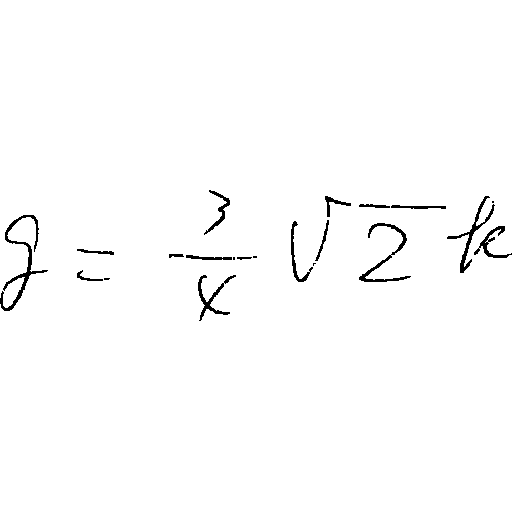 g = \frac{3}{4} \sqrt{2} k